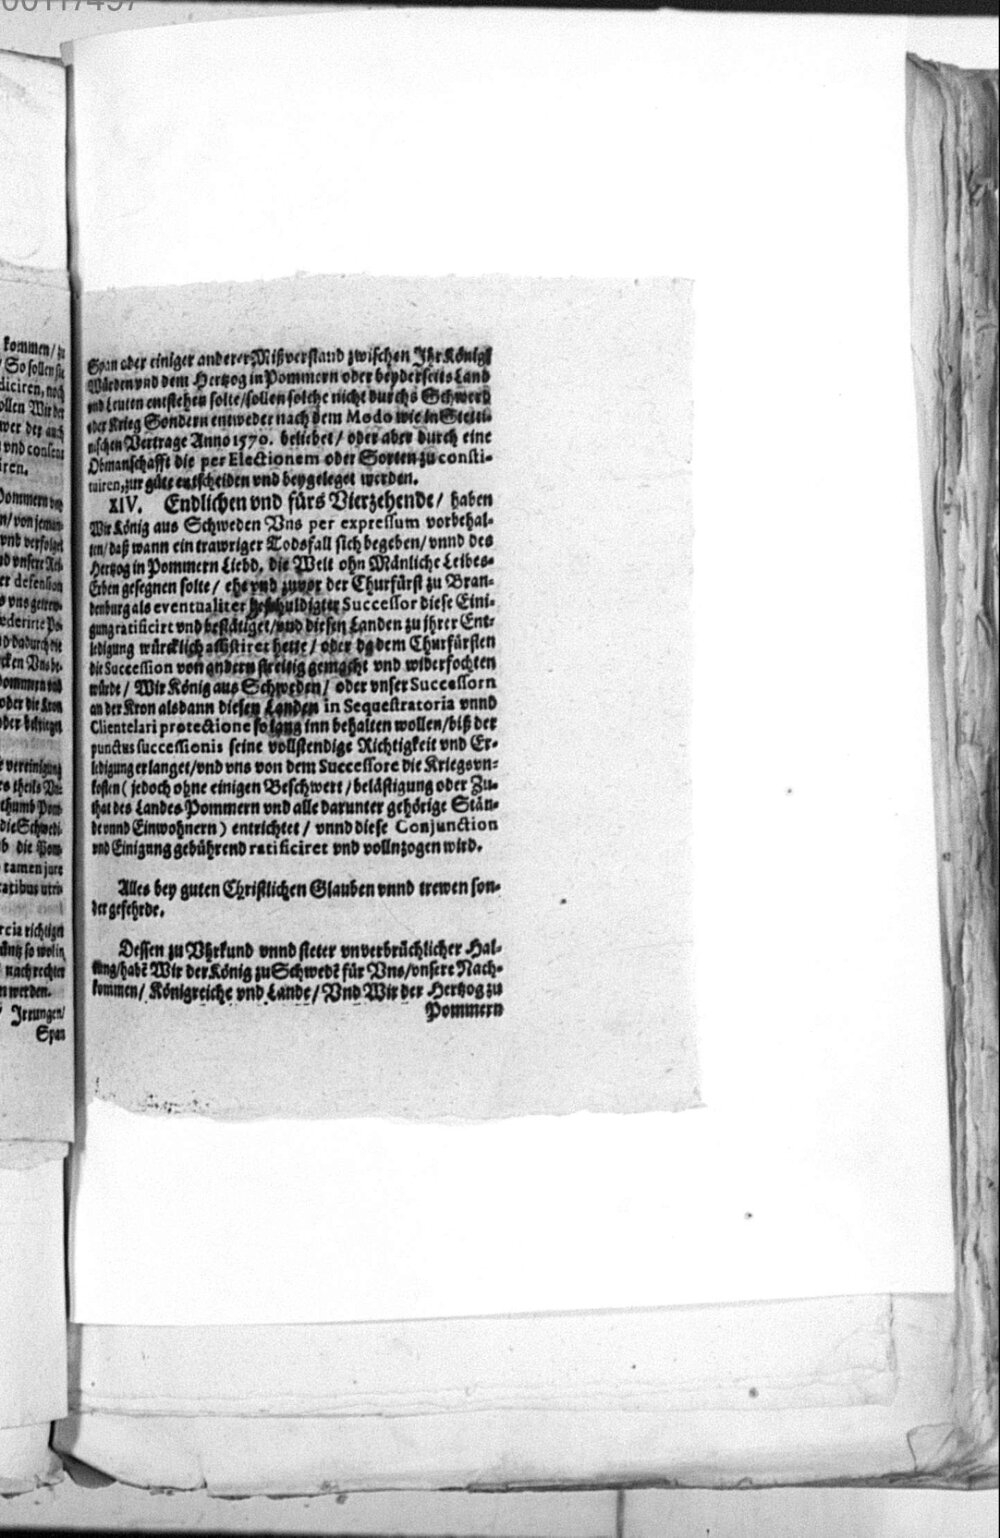 kommen/ zu
So sollen sie
diciren, noch
ollen Wir der
wer der auch
vnd consens
iren.
Pommern
n/ von
vnd verfolget
er defension
ommern vnd
oder die Kron
oder bekrieget
vereinigung
die Schwedi-
b die Pom-
tamen jure
ratibus utri-
rcia richtiget
nach rechter
n werden.
Irrungen/
Span
Span oder einiger anderer Mißverstand zwischen Ihr Königl
Würden vnd dem Hertzog in Pommern oder beyderseits Land
vnd Leuten entstehen solte/ sollen solche nicht durchs Schwerd
oder Krieg Sondern entweder nach dem Modo wie in Stetti-
nischen Vertrage Anno 1570. beliebet/ oder aber durch eine
Obmanschafft die per Electionem oder Sorten zu consti-
tuiren, zur güte entscheiden vnd beygeleget werden.
XIV. Endlichen vnd fürs Vierzehende/ haben
Wir König aus Schweden Vns per expressum vorbehal-
ten/ daß wann ein trawriger Todsfall sich begeben/ vnnd des
Hertzog in Pommern Liebd. die Welt ohn Mänliche Leibes-
Erben gesegnen solte/ ehe vnd zuvor der Churfürst zu Bran-
denburg als eventualiter Successor diese Eini-
gung ratificirt vnd bestätiget/ vnd diesen Landen zu jhrer Ent-
ledigung würcklich assistiret hette/ oder da dem Churfürsten
die Succession von andern streitig gemacht vnd widerfochten
würde/ Wir König aus Schweden/ oder vnser Successorn
an der Kron alsdann diesen Landen in Sequestratoria vnnd
Clientelari protectione so lang inn behalten wollen/ biß der
punctus successionis seine vollstendige Richtigkeit vnd Er-
ledigung erlanget/ vnd vns von dem Successore die Kriegsvn-
kosten ( jedoch ohne einigen Beschwert/ belästigung oder Zu-
that des Landes Pommern vnd alle darunter gehörige Stän-
de vnnd Einwohnern ) entrichtet/ vnnd diese Conjunction
vnd Einigung gebührend ratificiret vnd vollnzogen wird.
Alles bey guten Christlichen Glauben vnnd trewen son-
der gefehrde.
Dessen zu Vhrkund vnnd steter vnverbrüchlicher Hal-
tung/ habē Wir der König zu Schwedē für Vns/ vnsere Nach-
kommen/ Königreiche vnd Lande/ Vnd Wir der Hertzog zu
Pommern